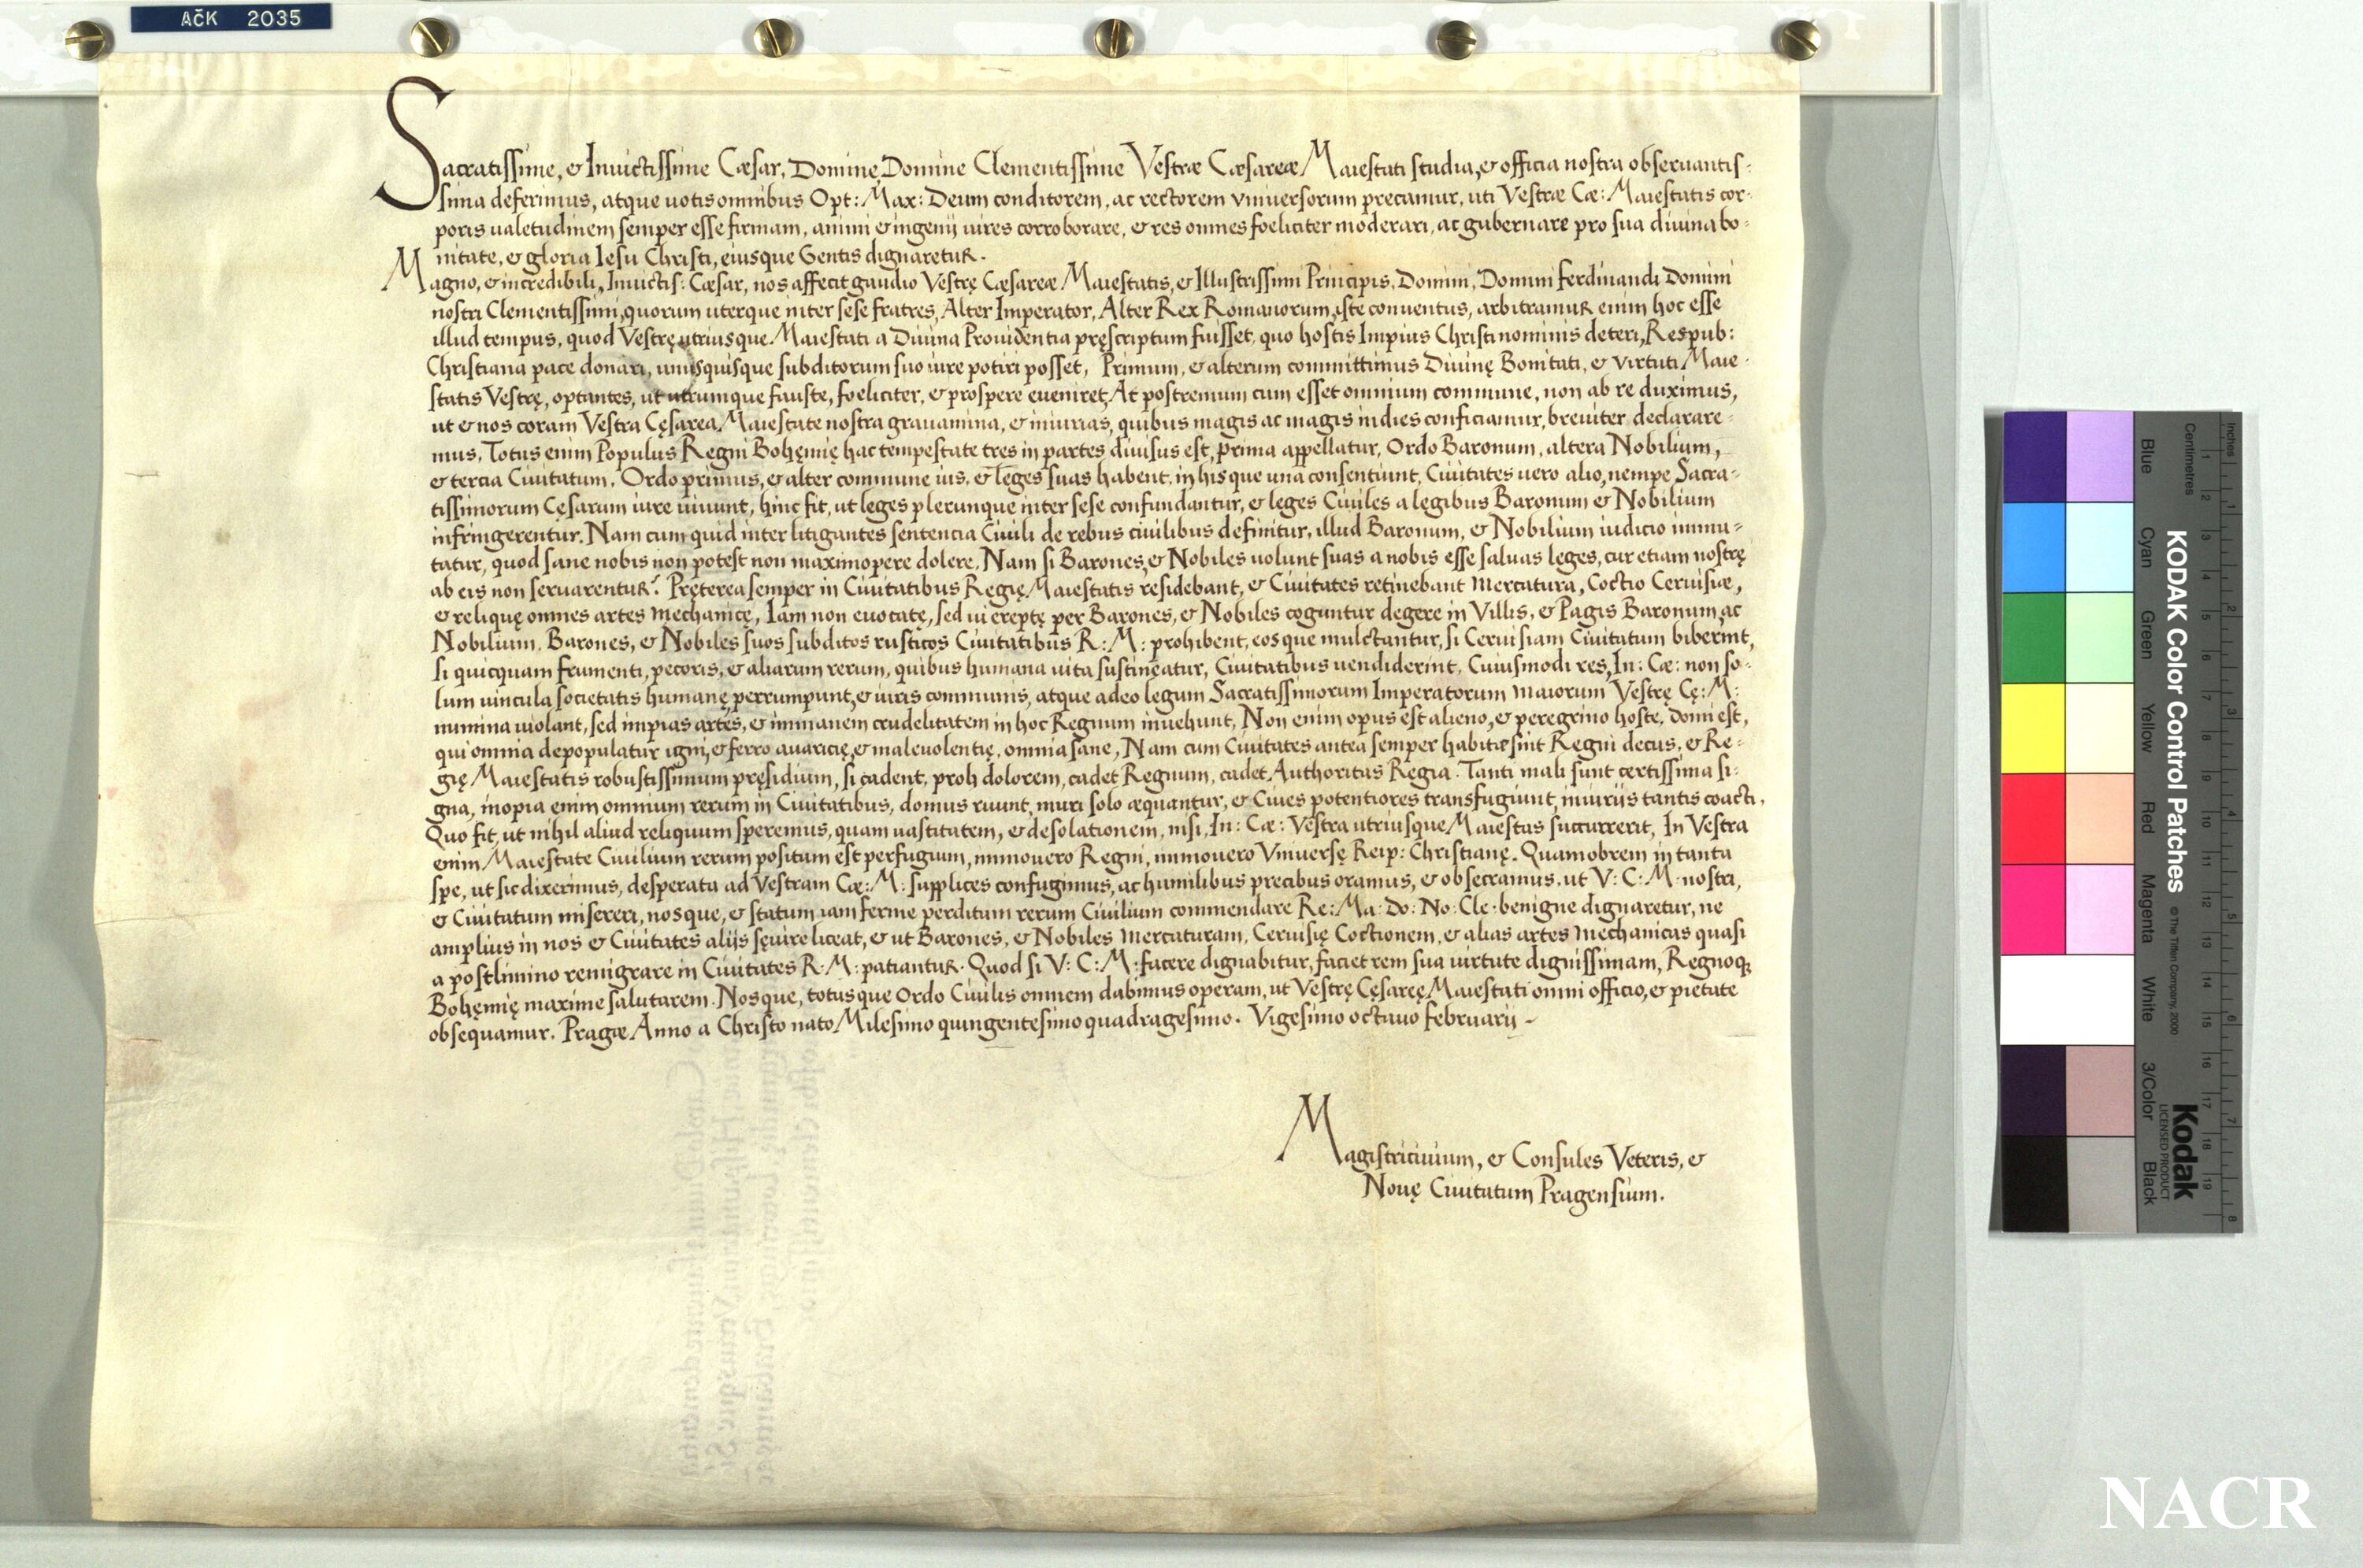 AČK 2035
Sacratissime, & Inuictissime Cæsar, Domine, Domine Clementissime Vestræ Cæsareæ Maiestati studia, & officia nostra obseruantis-
sima deferimus, atque uotis omnibus Opt: Max: Deum conditorem, ac rectorem vniuersorum precamur, uti Vestræ Cæ: Maiestatis cor-
poris ualetudinem semper esse firmam, animi & ingenij uires corroborare, & res omnes foeliciter moderari, ac gubernare pro sua diuina bo-
nitate, & gloria Iesu Christi, eiusque Gentis dignaretur.
Magno, & incredibili, Inuictis: Cæsar, nos affecit gaudio Vestrę Cæsareæ Maiestatis, & Illustrissimi Principis, Domini, Domini Ferdinandi Domini
nostri Clementissimi, quorum uterque inter sese fratres, Alter Imperator, Alter Rex Romanorum, iste conuentus, arbitramur enim hoc esse
illud tempus, quod Vestrę utriusque Maiestati a Diuina Prouidentia pręscriptum fuisset, quo hostis Impius Christi nominis deteri, Respub:
Christiana pace donari, unusquisque subditorum suo iure potiri posset, Primum, & alterum committimus Diuinę Bonitati, & virtuti Maie-
statis Vestrę, optantes, ut utrumque fauste, foeliciter, & prospere eueniret, At postremum cum esset omnium commune, non ab re duximus,
ut & nos coram Vestra Cęsarea Maiestate nostra grauamina, & iniurias, quibus magis ac magis in dies conficiamur, breuiter declarare-
mus. Totus enim Populus Regni Bohęmię hac tempestate tres in partes diuisus est, prima appellatur, Ordo Baronum, altera Nobilium,
& tercia Ciuitatum. Ordo primus, & alter commune ius, & leges suas habent, in hisque una consentiunt, Ciuitates uero alio, nempe Sacra-
tissimorum Cęsarum iure uiuunt, hinc fit, ut leges plerunque inter sese confundantur, & leges Ciuiles a legibus Baronum & Nobilium
infringerentur. Nam cum quid inter litigantes sentencia Ciuili de rebus ciuilibus definitur, illud Baronum, & Nobilium iudicio immu-
tatur, quod sane nobis non potest non maximopere dolere. Nam si Barones, & Nobiles uolunt suas a nobis esse saluas leges, cur etiam nostrę
ab eis non seruarentur? Pręterea semper in Ciuitatibus Regię Maiestatis residebant, & Ciuitates retinebant Mercatura, Coctio Ceruisiæ,
& reliquę omnes artes Mechanicę, Iam non euocatę, sed ui ereptę per Barones, & Nobiles coguntur degere in Villis, & Pagis Baronum, ac
Nobilium. Barones, & Nobiles suos subditos rusticos Ciuitatibus R: M: prohibent, eosque mulctantur, si Ceruisiam Ciuitatum biberint,
si quicquam frumenti, pecoris, & aliarum rerum, quibus humana uita sustineatur, Ciuitatibus uendiderint, Cuiusmodi res, In: Cæ: non so-
lum uincula societatis humanę perrumpunt, & iuris communis, atque adeo legum Sacratissimorum Imperatorum Maiorum Vestrę Cę: M:
numina uiolant, sed impias artes, & immanem crudelitatem in hoc Regnum inuehunt, Non enim opus est alieno, & peregrino hoste, domi est,
qui omnia depopulatur igni, & ferro auaricię, & maleuolentię, omnia sane, Nam cum Ciuitates antea semper habitæ sint Regni decus, & Re-
gię Maiestatis robustissimum pręsidium, si cadent, proh dolorem, cadet Regnum, cadet Authoritas Regia. Tanti mali sunt certissima si-
gna, inopia enim omnium rerum in Ciuitatibus, domus ruunt, muri solo æquantur, & Ciues potentiores transfugiunt, iniurijs tantis coacti.
Quo fit, ut nihil aliud reliquum speremus, quam uastitatem, & desolationem, nisi, In: Cæ: Vestra utriusque Maiestas succurrerit, In Vestra
enim Maiestate Ciuilium rerum positum est perfugium, immouero Regni, immouero Vniuersę Reip: Christianę. Quamobrem in tanta
spe, ut sic dixerimus, desperata ad Vestram Cæ: M: supplices confugimus, ac humilibus precibus oramus, & obsecramus, ut V: C: M: nostri,
& Ciuitatum misereri, nosque, & statum iam ferme perditum rerum Ciuilium commendare Re: Ma: Do: No: Cle: benigne dignaretur, ne
amplius in nos & Ciuitates alijs sęuire liceat, & ut Barones, & Nobiles Mercaturam, Ceruisię Coctionem, & alias artes Mechanicas quasi
a postlimino remigrare in Ciuitates R: M: patiantur. Quod si V: C: M: facere dignabitur, faciet rem sua uirtute dignissimam, Regnoq;
Bohęmię maxime salutarem. Nosque, totusque Ordo Ciuilis omnem dabimus operam, ut Vestrę Cęsareę Maiestati omni officio, & pietate
obsequamur. Pragæ Anno a Christo nato Milesimo quingentesimo quadragesimo. Vigesimo octauo februarij -
Magistri ciuium, & Consules Veteris, &
Nouę Ciuitatum Pragensium.
KODAK Color Control Patches
© The Tiffen Company, 2000
Kodak
LICENSED PRODUCT
Inches
Centimetres
Blue
Cyan
Green
Yellow
Red
Magenta
White
3/Color
Black
NACR